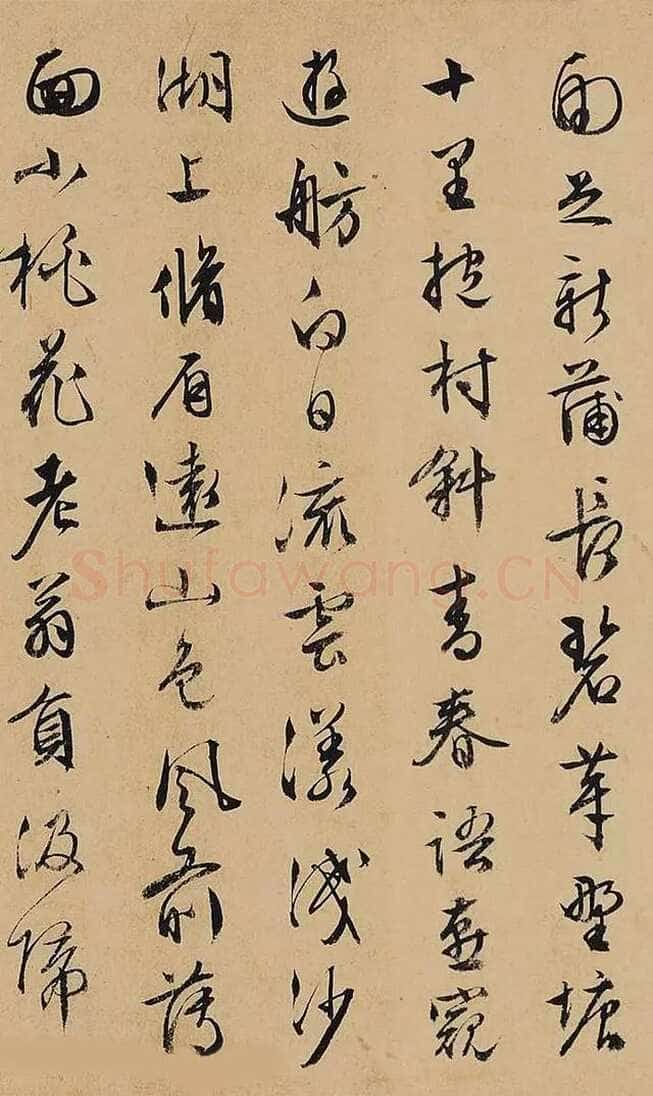 雨足新蒲長碧芽野塘
十里抱村斜青春語燕窺
遊舫白日流雲漾淺沙
湖上脩眉遠山色風前薄
面小桃花老翁負汲歸
Shufawang.CN